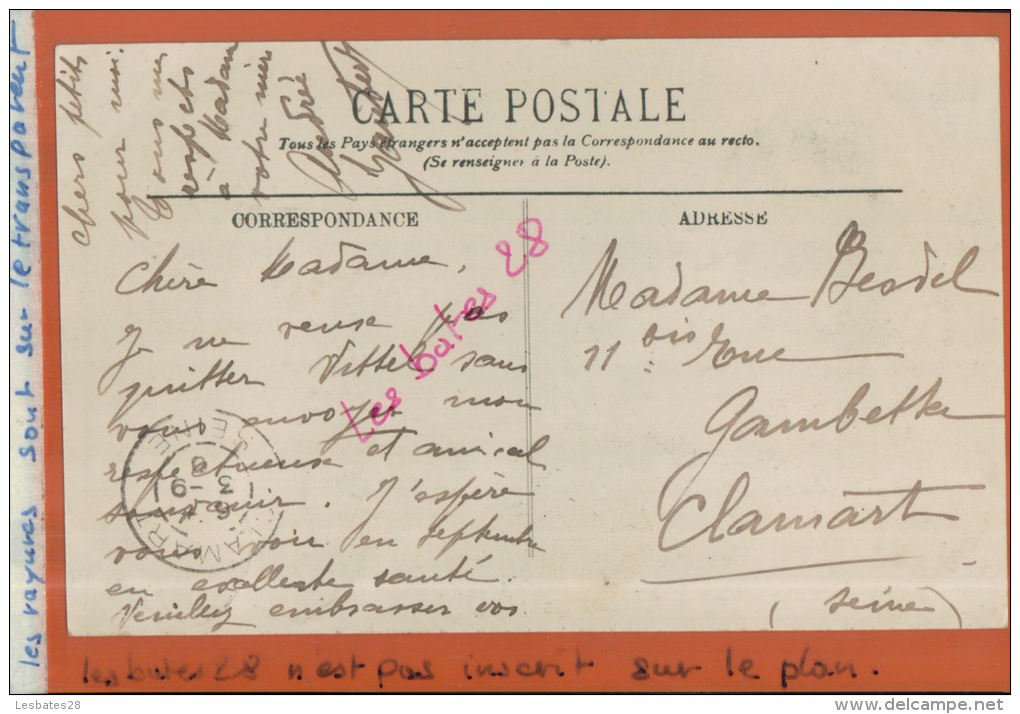 les rayures sont sur le transparent
chers petits
pour moi.
Tous mes
respects
à Madame
votre mère
André
CARTE POSTALE
Tous les Pays étrangers n'acceptent pas la Correspondance au recto.
(Se renseigner à la Poste).
CORRESPONDANCE
ADRESSE
Chère Madame,
Je ne veux pas
quitter Vittel sans
vous envoyer mon
respectueux et amical
souvenir. J'espère
vous voir en septembre
en excellente santé.
Veuillez embrasser vos
Les bates 28
Madame Besdel
11 bis rue
Gambetta
Clamart
(Seine)
CLAMART
SEINE
3 -9
lesbates28 n'est pas inscrit sur le plan.
Lesbates28
http://www.delcampe.net